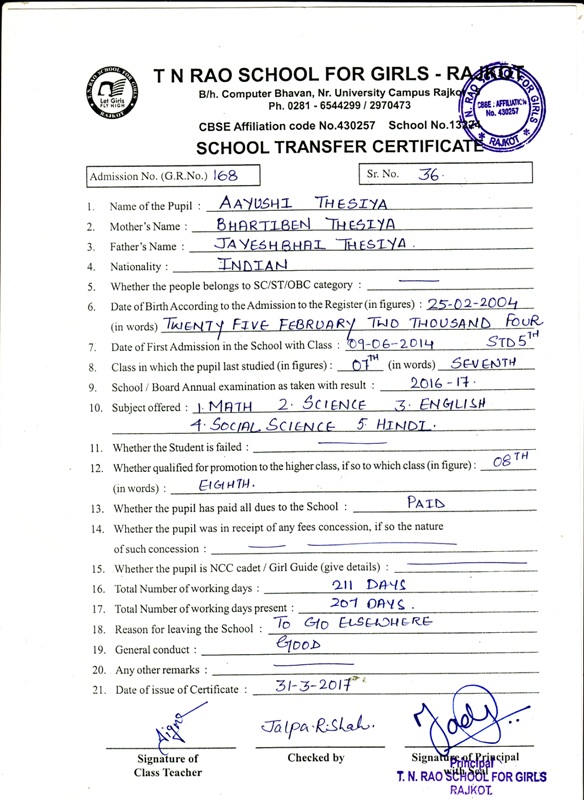 T. N. RAO SCHOOL FOR GIRLS
Let Girls
FLY HIGH
RAJKOT
T N RAO SCHOOL FOR GIRLS - RAJKOT
B/h. Computer Bhavan, Nr. University Campus Rajkot
Ph. 0281 - 6544299 / 2970473
T. N. RAO SCHOOL FOR GIRLS
CBSE : AFFILIATION
No. 430257
RAJKOT
CBSE Affiliation code No.430257 School No.
SCHOOL TRANSFER CERTIFICATE
Admission No. (G.R.No.) 168 Sr. No. 36.
1. Name of the Pupil : AAYUSHI THESIYA
2. Mother's Name : BHARTIBEN THESIYA
3. Father's Name : JAYESHBHAI THESIYA.
4. Nationality : INDIAN
5. Whether the people belongs to SC/ST/OBC category :
6. Date of Birth According to the Admission to the Register (in figures) : 25-02-2004
(in words) TWENTY FIVE FEBRUARY TWO THOUSAND FOUR
7. Date of First Admission in the School with Class : 09-06-2014 STD 5TH
8. Class in which the pupil last studied (in figures) : 07TH (in words) SEVENTH
9. School / Board Annual examination as taken with result : 2016-17.
10. Subject offered : 1. MATH 2. SCIENCE 3. ENGLISH
4. SOCIAL SCIENCE 5 HINDI.
11. Whether the Student is failed :
12. Whether qualified for promotion to the higher class, if so to which class (in figure) : 08TH
(in words) : EIGHTH.
13. Whether the pupil has paid all dues to the School : PAID
14. Whether the pupil was in receipt of any fees concession, if so the nature
of such concession :
15. Whether the pupil is NCC cadet / Girl Guide (give details) :
16. Total Number of working days : 211 DAYS
17. Total Number of working days present : 207 DAYS.
18. Reason for leaving the School : TO GO ELSEWHERE
19. General conduct : GOOD
20. Any other remarks :
21. Date of issue of Certificate : 31-3-2017
Jalpa.R.Shah.
Signature of Checked by Signature of Principal
Class Teacher with Seal
Principal
T. N. RAO SCHOOL FOR GIRLS
RAJKOT.